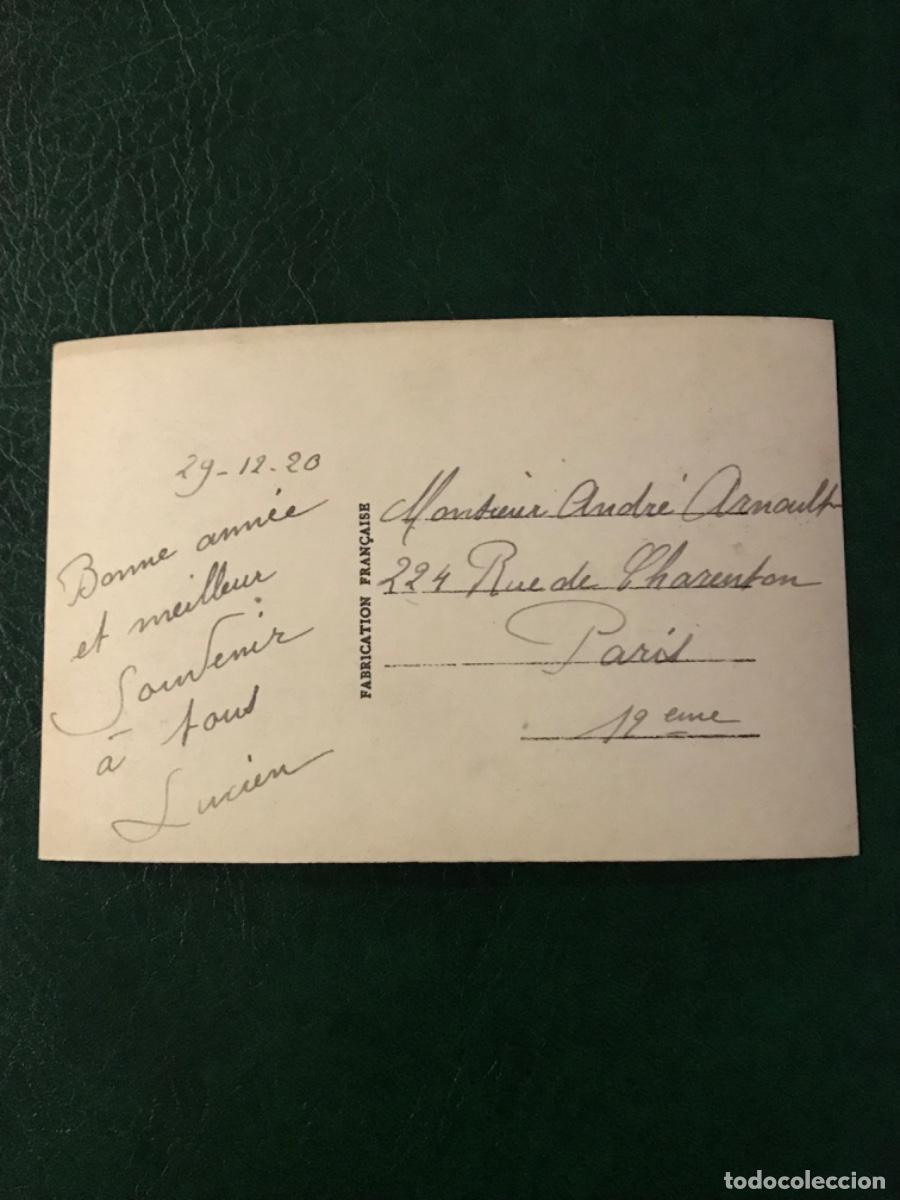 29-12-20
Bonne année
et meilleur
Souvenir
à tous
Lucien
FABRICATION FRANÇAISE
Monsieur André Arnault
224 Rue de Charenton
Paris
12 eme
todocoleccion